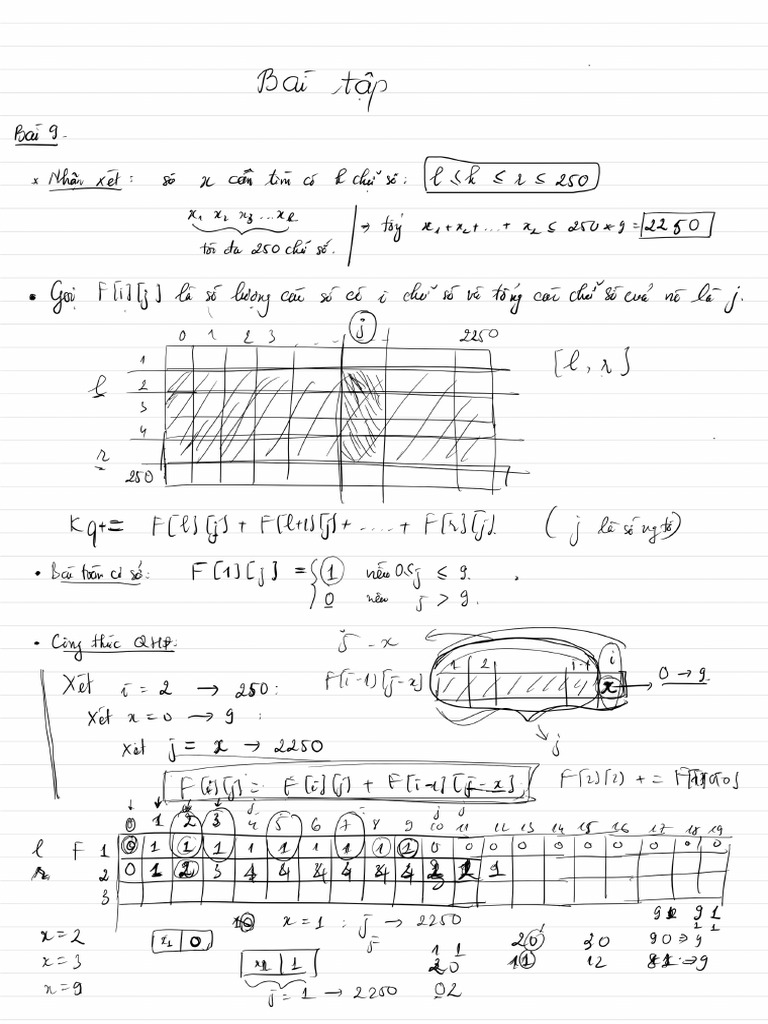 Bài tập
Bài 9.
x Nhận xét: số x cần tìm có k chữ số: l ≤ k ≤ r ≤ 250
x₁ x₂ x₃ ... xₖ
tối đa 250 chữ số.
⇒ tổng x₁+x₂+...+xₖ ≤ 250*9 = 2250
• Gọi F[i][j] là số lượng các số có i chữ số và tổng các chữ số của nó là j.
0 1 2 3 ... j 2250
1
l 2
3
4
r
250
[l, r]
Kq += F[l][j] + F[l+1][j] + .... + F[r][j]. ( j là số ngtố)
• Bài toán cơ sở: F[1][j] = { 1 nếu 0≤j ≤ 9.
0 nếu j > 9.
• Công thức QHĐ:
j - x
F[i-1][j-x]
1 2 i-1 i
x 0 → 9
j
Xét i = 2 → 250:
Xét x = 0 → 9 :
Xét j = x → 2250
F[i][j] = F[i][j] + F[i-1][j-x]
F[2][2] +=
0 1 2 3 4 5 6 7 8 9 10 11 12 13 14 15 16 17 18 19
l F 1 0 1 1 1 1 1 1 1 1 1 0 0 0 0 0 0 0 0 0 0
r 2 0 1 2 3 4 4 4 4 4 4 1
3
x = 1 : j → 2250
x = 2
x = 3
x = 9
x₁ 0
1
j = 1 → 2250
11
20
02
20 30
11 12
90 ⇒ 9
⇒ 9
91